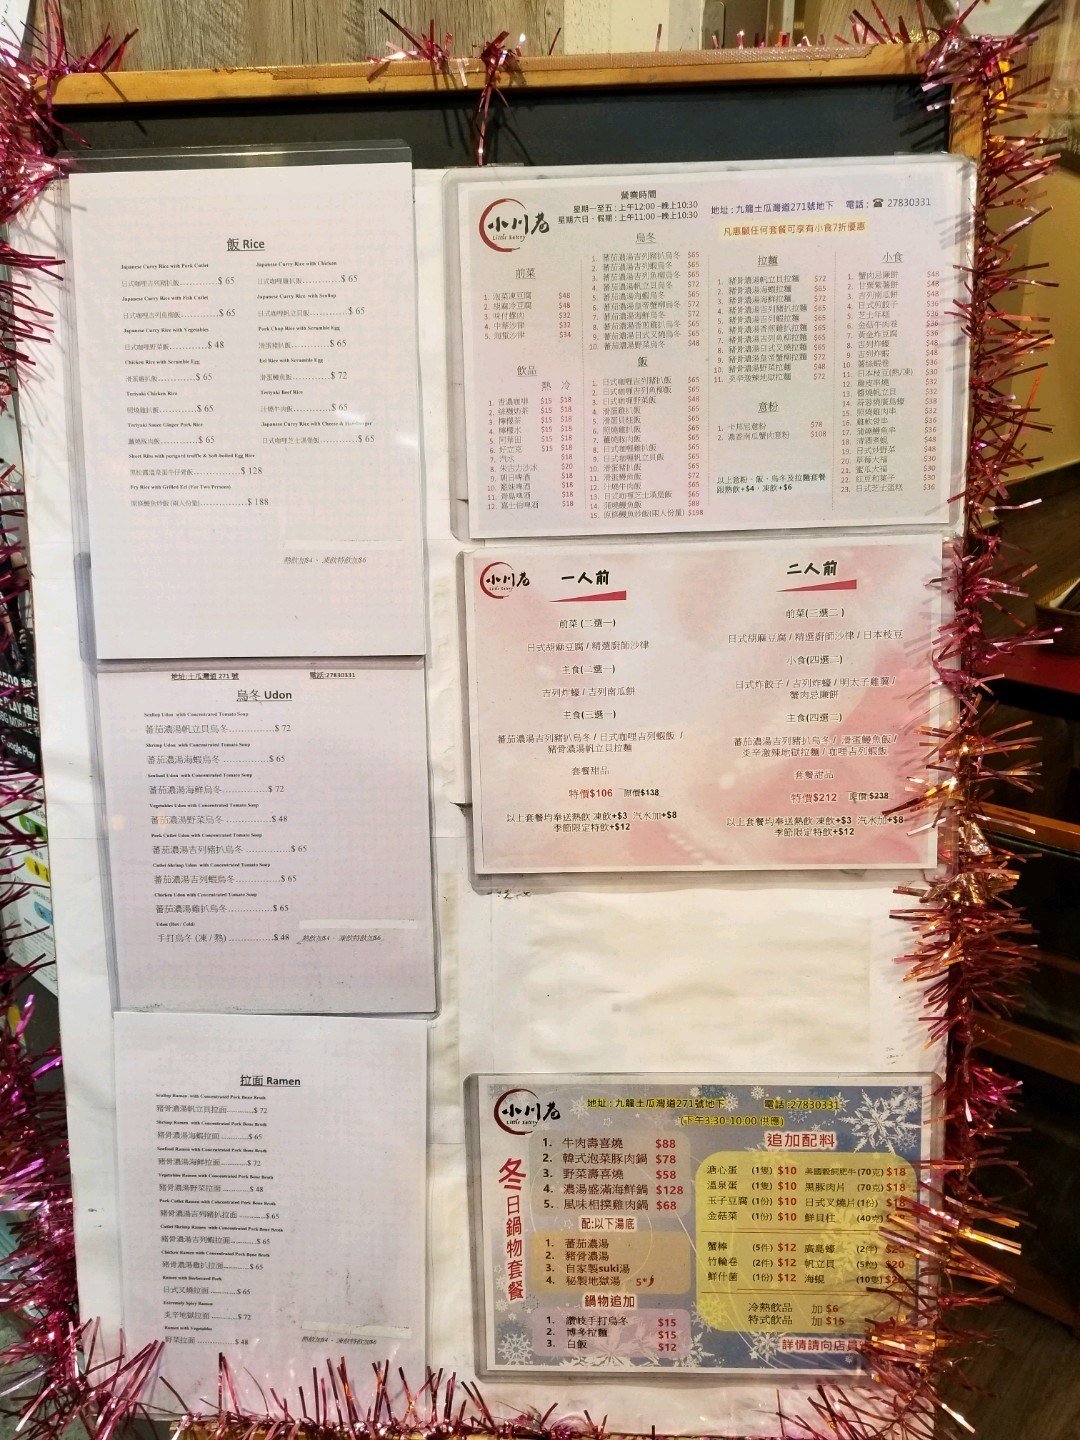 飯 Rice
Japanese Curry Rice with Pork Cutlet
日式咖哩吉列豬扒飯 $ 65
Japanese Curry Rice with Chicken
日式咖哩雞扒飯 $ 65
Japanese Curry Rice with Fish Cutlet
日式咖哩吉列魚柳飯 $ 65
Japanese Curry Rice with Scallop
日式咖哩帆立貝飯 $ 65
Japanese Curry Rice with Vegetables
日式咖哩野菜飯 $ 48
Pork Chop Rice with Scramble Egg
滑蛋豬扒飯 $ 65
Chicken Rice with Scramble Egg
滑蛋雞扒飯 $ 65
Eel Rice with Scramble Egg
滑蛋鰻魚飯 $ 72
Teriyaki Chicken Rice
照燒雞扒飯 $ 65
Teriyaki Beef Rice
汁燒牛肉飯 $ 65
Teriyaki Sauce Ginger Pork Rice
薑燒豚肉飯 $ 65
Japanese Curry Rice with Cheese & Hamburger
日式咖哩芝士漢堡飯 $ 65
Short Ribs with perigord truffle & Soft-boiled Egg Rice
黑松露溫泉蛋牛仔骨飯 $ 128
Fry Rice with Grilled Eel (For Two Persons)
原條鰻魚炒飯 (兩人份量) $ 188
熱飲加$4、凍飲特飲加$6
地址:土瓜灣道 271 號 電話:27830331
烏冬 Udon
Scallop Udon with Concentrated Tomato Soup
蕃茄濃湯帆立貝烏冬 $ 72
Shrimp Udon with Concentrated Tomato Soup
蕃茄濃湯海蝦烏冬 $ 65
Seafood Udon with Concentrated Tomato Soup
蕃茄濃湯海鮮烏冬 $ 72
Vegetables Udon with Concentrated Tomato Soup
蕃茄濃湯野菜烏冬 $ 48
Pork Cutlet Udon with Concentrated Tomato Soup
蕃茄濃湯吉列豬扒烏冬 $ 65
Cutlet Shrimp Udon with Concentrated Tomato Soup
蕃茄濃湯吉列蝦烏冬 $ 65
Chicken Udon with Concentrated Tomato Soup
蕃茄濃湯雞扒烏冬 $ 65
Udon (Hot / Cold)
手打烏冬 (凍 / 熱) $ 48 熱飲加$4、凍飲特飲加$6
拉面 Ramen
Scallop Ramen with Concentrated Pork Bone Broth
豬骨濃湯帆立貝拉面 $ 72
Shrimp Ramen with Concentrated Pork Bone Broth
豬骨濃湯海蝦拉面 $ 65
Seafood Ramen with Concentrated Pork Bone Broth
豬骨濃湯海鮮拉面 $ 72
Vegetables Ramen with Concentrated Pork Bone Broth
豬骨濃湯野菜拉面 $ 48
Pork Cutlet Ramen with Concentrated Pork Bone Broth
豬骨濃湯吉列豬扒拉面 $ 65
Cutlet Shrimp Ramen with Concentrated Pork Bone Broth
豬骨濃湯吉列蝦拉面 $ 65
Chicken Ramen with Concentrated Pork Bone Broth
豬骨濃湯吉列雞扒 $ 65
Ramen with Barbecued Pork
日式叉燒拉面 $ 65
Extremely Spicy Ramen
炎辛地獄拉面 $ 72
Ramen with Vegetables
野菜拉面 $ 48
熱飲加$4、凍飲特飲加$6
小川巷
Little Eatery
營業時間
星期一至五 : 上午12:00 -晚上10:30
星期六日、假期 : 上午11:00 -晚上10:30
地址 : 九龍土瓜灣道271號地下 電話 : ☎ 27830331
凡惠顧任何套餐可享有小食7折優惠
前菜
1. 泡菜凍豆腐 $48
2. 胡麻冷豆腐 $48
3. 味付螺肉 $32
4. 中華沙律 $32
5. 海蜇沙律 $34
飲品
熱 冷
1. 香濃咖啡 $15 $18
2. 絲襪奶茶 $15 $18
3. 檸檬茶 $15 $18
4. 檸檬水 $15 $18
5. 阿華田 $15 $18
6. 好立克 $15 $18
7. 汽水 $18
8. 朱古力沙冰 $20
9. 朝日啤酒 $18
10. 藍妹啤酒 $18
11. 青島啤酒 $18
12. 嘉士伯啤酒 $18
烏冬
1. 蕃茄濃湯吉列豬扒烏冬 $65
2. 蕃茄濃湯吉列蝦烏冬 $65
3. 蕃茄濃湯吉列魚柳烏冬 $65
4. 蕃茄濃湯帆立貝烏冬 $72
5. 蕃茄濃湯海蝦烏冬 $65
6. 蕃茄濃湯皇帝蟹柳烏冬 $72
7. 蕃茄濃湯海鮮烏冬 $72
8. 蕃茄濃湯香煎雞扒烏冬 $65
9. 蕃茄濃湯日式叉燒烏冬 $65
10. 蕃茄濃湯野菜烏冬 $48
飯
1. 日式咖喱吉列豬扒飯 $65
2. 日式咖喱吉列魚柳飯 $65
3. 日式咖喱野菜飯 $48
4. 滑蛋雞扒飯 $65
5. 滑蛋蝦飯 $65
6. 照燒雞扒飯 $65
7. 薑燒豚肉飯 $65
8. 日式咖喱雞扒飯 $65
9. 日式咖喱帆立貝飯 $65
10. 滑蛋豬扒飯 $65
11. 滑蛋鰻魚飯 $72
12. 汁燒牛肉飯 $65
13. 日式咖喱芝士漢堡飯 $65
14. 蒲燒鰻魚飯 $88
15. 原條鰻魚炒飯(兩人份量) $198
拉麵
1. 豬骨濃湯帆立貝拉麵 $72
2. 豬骨濃湯海蝦拉麵 $65
3. 豬骨濃湯海鮮拉麵 $72
4. 豬骨濃湯吉列豬扒拉麵 $65
5. 豬骨濃湯吉列蝦拉麵 $65
6. 豬骨濃湯香煎雞扒拉麵 $65
7. 豬骨濃湯吉列魚柳拉麵 $65
8. 豬骨濃湯日式叉燒拉麵 $65
9. 豬骨濃湯皇帝蟹柳拉麵 $72
10. 豬骨濃湯野菜拉麵 $48
11. 炎辛激辣地獄拉麵 $72
意粉
1. 卡邦尼意粉 $78
2. 濃香南瓜蟹肉意粉 $108
以上意粉、飯、烏冬及拉麵套餐
跟熱飲+$4、凍飲+$6
小食
1. 蟹肉忌廉餅 $48
2. 甘栗紫薯餅 $48
3. 吉列南瓜餅 $48
4. 日式煎餃子 $36
5. 芝士年糕 $36
6. 金菇牛肉卷 $36
7. 黃金炸豆腐 $36
8. 吉列炸蠔 $48
9. 吉列炸蝦 $48
10. 蕃絲蝦卷 $36
11. 日本枝豆(熱/凍) $30
12. 脆皮串燒 $32
13. 醬燒帆立貝 $32
14. 蒜蓉燒廣島蠔 $38
15. 照燒雞肉串 $32
16. 雞軟骨串 $36
17. 蒲燒鰻魚串 $36
18. 清酒煮蜆 $48
19. 日式炒野菜 $48
20. 草莓大福 $30
21. 蜜瓜大福 $30
22. 紅豆和菓子 $36
23. 日式芝士蛋糕 $36
小川巷
Little Eatery
一人前
前菜 (二選一)
日式胡麻豆腐 / 精選廚師沙律
主食(二選一)
吉列炸蠔 / 吉列南瓜餅
主食(三選一)
蕃茄濃湯吉列豬扒烏冬 / 日式咖哩吉列蝦飯 /
豬骨濃湯帆立貝拉麵
套餐甜品
特價$106 原價$138
以上套餐均奉送熱飲 凍飲+$3 汽水加+$8
季節限定特飲+$12
二人前
前菜(三選二)
日式胡麻豆腐 / 精選廚師沙律 / 日本枝豆
小食(四選二)
日式炸餃子 / 吉列炸蠔 / 明太子雞翼 /
蟹肉忌廉餅
主食(四選二)
蕃茄濃湯吉列豬扒烏冬 / 滑蛋鰻魚飯 /
炎辛激辣地獄拉麵 / 咖哩吉列蝦飯
套餐甜品
特價$212 原價$238
以上套餐均奉送熱飲 凍飲+$3 汽水加+$8
季節限定特飲+$12
小川巷
Little Eatery
地址 : 九龍土瓜灣道271號地下 電話 :27830331
(下午3:30-10:00 供應)
冬日鍋物套餐
1. 牛肉壽喜燒 $88
2. 韓式泡菜豚肉鍋 $78
3. 野菜壽喜燒 $58
4. 濃湯盛滿海鮮鍋 $128
5. 風味相撲雞肉鍋 $68
配:以下湯底
1. 蕃茄濃湯
2. 豬骨濃湯
3. 自家製suki湯
4. 秘製地獄湯 5*
鍋物追加
1. 讚岐手打烏冬 $15
2. 博多拉麵 $15
3. 白飯 $12
追加配料
溏心蛋 (1隻) $10 美國穀飼肥牛(70克) $18
溫泉蛋 (1隻) $10 黑豚肉片 (70克) $18
玉子豆腐 (1份) $10 日式叉燒片(1份) $18
金菇菜 (1份) $10 鮮貝柱 (40克)
蟹棒 (5件) $12 廣島蠔 (2件) $20
竹輪卷 (2件) $12 帆立貝 (5粒) $20
鮮什菌 (1份) $12 海蜆 (10隻) $20
冷熱飲品 加 $6
特式飲品 加 $15
詳情請向店員